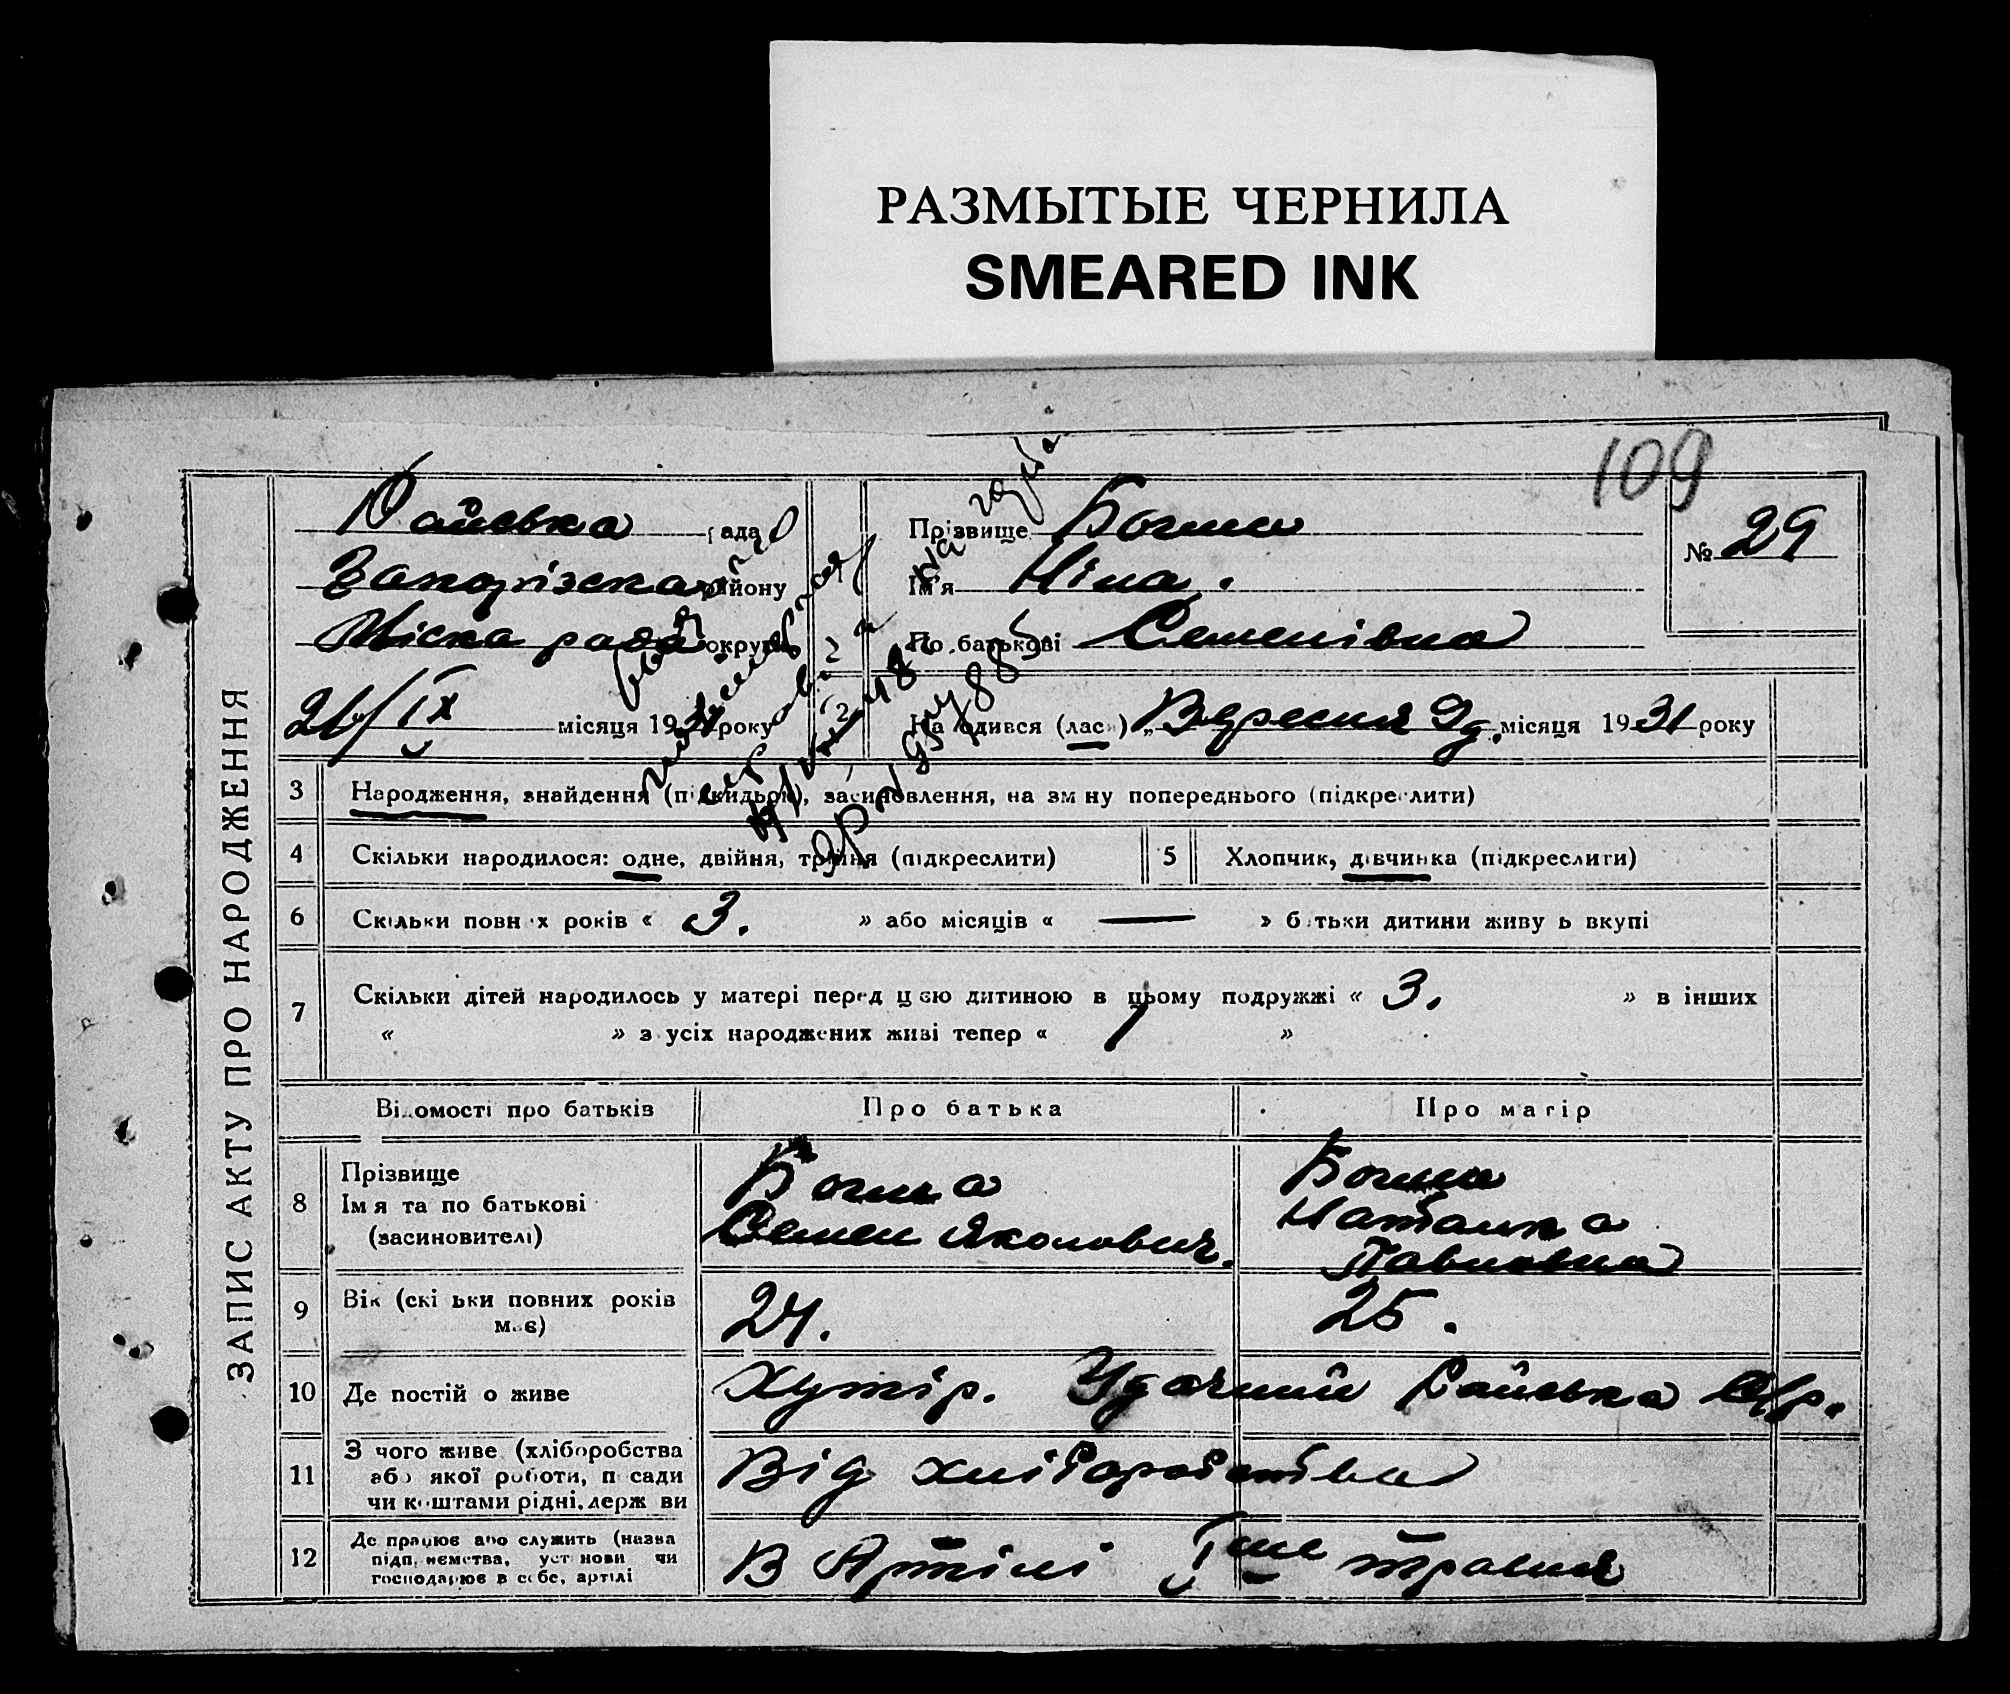 РАЗМЫТЫЕ ЧЕРНИЛА
SMEARED INK
109
ЗАПИС АКТУ ПРО НАРОДЖЕННЯ
рада
району
Міска рада округи
21/IX місяця 1931 року
Прізвище Богма
Ім'я Ніна.
По батькові Семенівна
№ 29
2
На одився (лась) „Вересня 9д. місяця 1931 року
3 Народження, знайдення (підкидьок), засиновлення, на зміну попереднього (підкреслити)
4 Скільки народилося: одне, двійня, трійня (підкреслити)
5 Хлопчик, дівчинка (підкреслити)
6 Скільки повних років « 3. » або місяців « — » батьки дитини живуть вкупі
7 Скільки дітей народилось у матері перед цією дитиною в цьому подружжі « 3. » в інших
« » з усіх народжених живі тепер « 1 »
Відомості про батьків
Про батька
Про матір
8 Прізвище
Імя та по батькові
(засиновителі)
Богма
Семен Якович.
Богма
Наталка
Павловна
9 Вік (скільки повних років
має)
24.
25.
10 Де постійно живе
Хутір. Удачний Райська С/р.
11 З чого живе (хліборобства
або якої роботи, посади
чи коштами рідні, держави
Від хліборобства
12 Де працює або служить (назва
підприємства, установи чи
господарює в себе, артілі
В Артілі 1ше травня